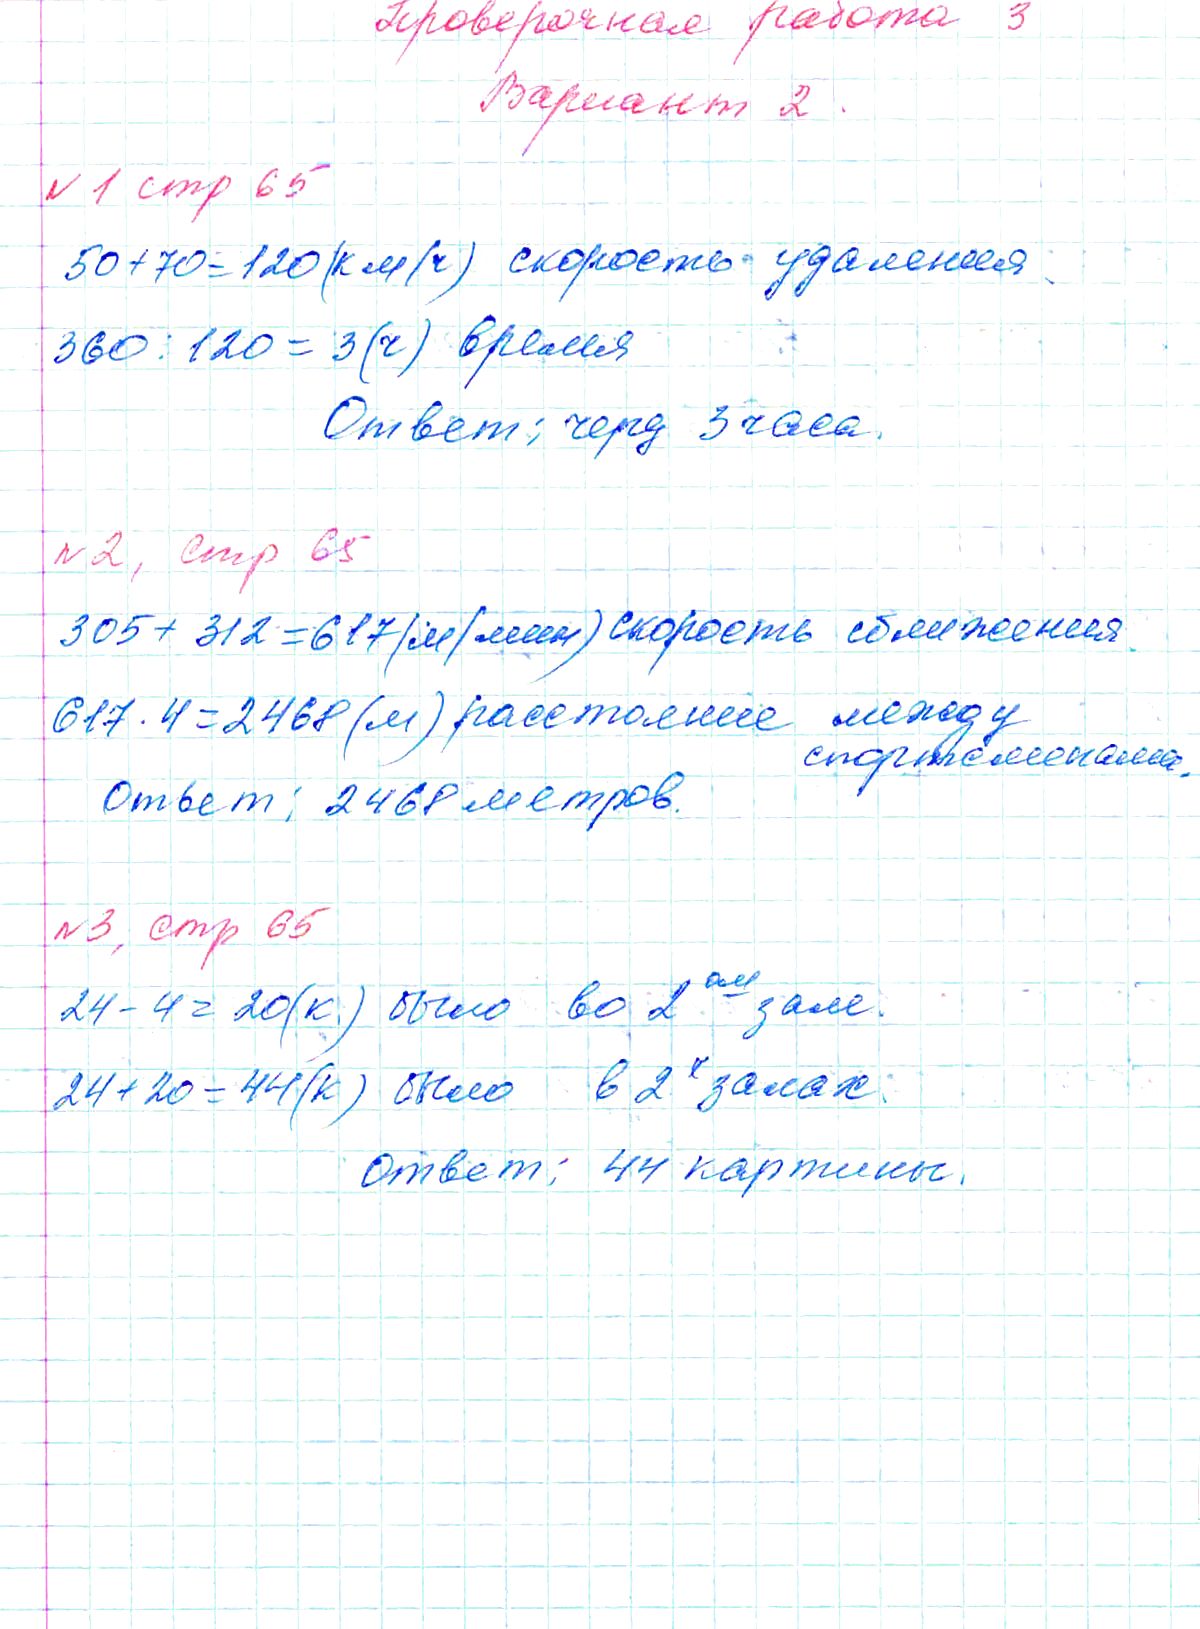 Проверочная работа 3
Вариант 2.
№1 стр 65
50+70=120(км/ч) скорость удаления.
360:120=3(ч) время
Ответ: через 3 часа.
№2, стр 65
305+312=617(м/мин) скорость сближения.
617·4=2468(м) расстояние между
спортсменами.
Ответ: 2468 метров.
№3, стр 65
24-4=20(к.) было во 2ом зале.
24+20=44(к) было в 2х залах.
Ответ: 44 картины.